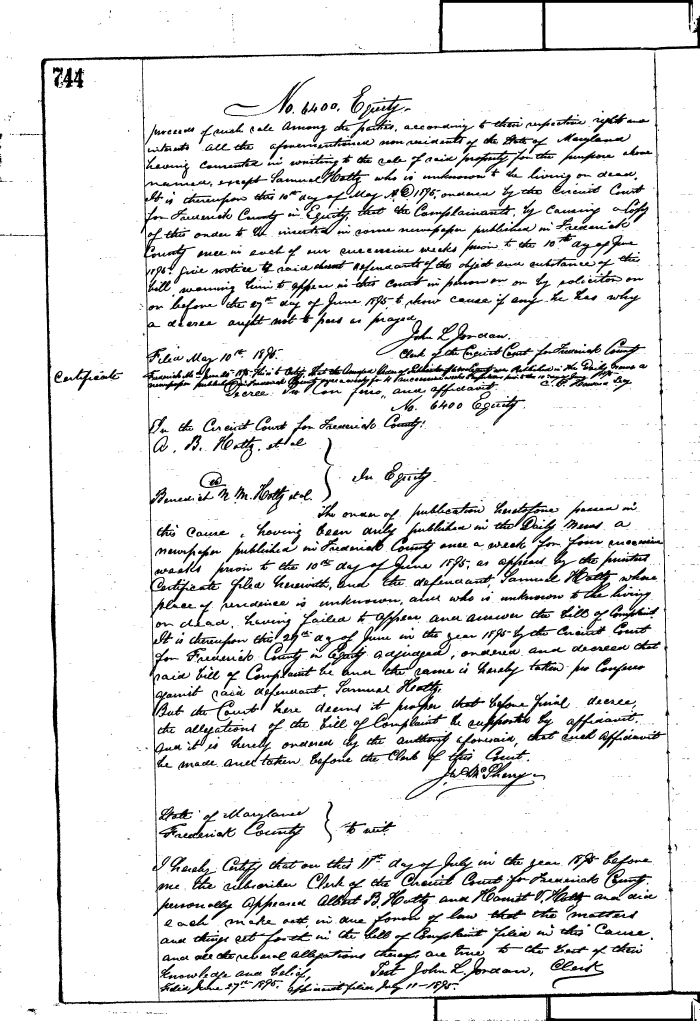 744
No. 6400. Equity.
proceeds of such sale among the parties, according to their respective rights and
interests all the aforementioned non residents of the State of Maryland
having consented in writing to the sale of said property for the purpose above
named, except Samuel Hotty who is unknown to be living or dead.
It is thereupon this 10th day of May A.D. 1895, ordered by the Circuit Court
for Frederick County in Equity, that the Complainants, by causing a Copy
of this order to be inserted in some newspaper published in Frederick
County once in each of four successive weeks prior to the 10th day of June
1895. give notice to said defendants of the object and substance of this
bill, warning him to appear in this court in person or by solicitor on
or before the 27th day of June 1895 to show cause if any he has why
a decree ought not to pass as prayed
John L. Jordan.
Filed May 10th 1895.
Clerk of the Circuit Court for Frederick County
Certificate
This is to Certify that the annexed was published in the Daily News a
newspaper published in Frederick County once a week for 4 successive weeks prior to the
Decree Pro Con fesso, and affidavit
No. 6400 Equity.
In the Circuit Court for Frederick County.
A. B. Hotty, et al
vs
In Equity
Benedict N. M. Hotty et al.
The order of publication heretofore passed in
this cause, having been duly published in the Daily News a
newspaper published in Frederick County once a week for four successive
weeks prior to the 10th day of June 1895, as appears by the printers
Certificate filed herewith, and the defendant, Samuel Hotty whose
place of residence is unknown, and who is unknown to be living
or dead, having failed to appear and answer the bill of Complaint
It is thereupon this 29th day of June in the year 1895 by the Circuit Court
for Frederick County in Equity adjudged, ordered and decreed that
said bill of Complaint be and the same is hereby taken pro Confesso
against said defendant, Samuel Hotty.
But the Court here deems it proper that before final decree,
the allegations of the bill of Complaint be supported by affidavit.
And it is hereby ordered by the authority aforesaid, that such affidavit
be made and taken before the Clerk of this Court.
McSherry
State of Maryland
Frederick County
to wit.
I hereby Certify that on this 11th day of July in the year 1895 before
me the subscriber Clerk of the Circuit Court for Frederick County
personally appeared Albert B. Hotty and Harriet T. Hotty and did
each make oath in due form of law that the matters
and things set forth in the bill of Complaint filed in this Cause,
and all the several allegations thereof are true to the best of their
knowledge and belief,
Test John L. Jordan, Clerk
Filed June 27th 1895. Affidavit filed July 11-1895.